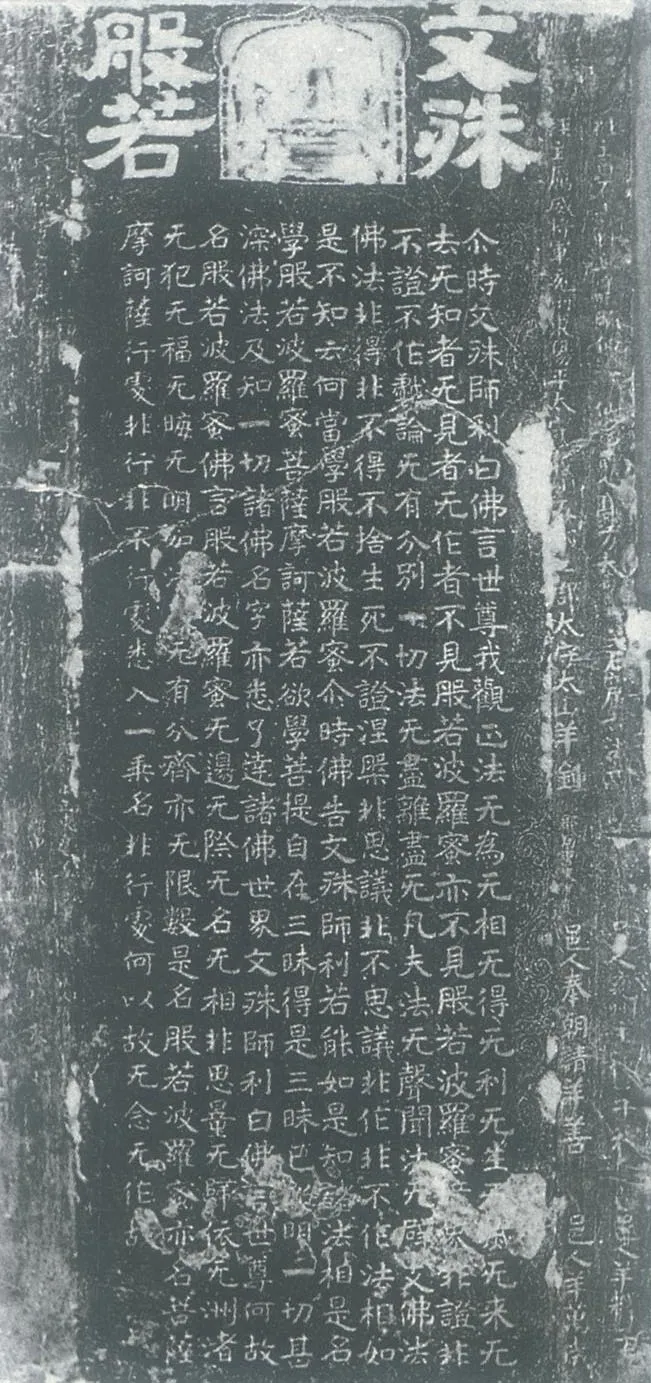 文殊
般若
郎太守太山羊釗
邑人奉朝請羊善
邑人羊
尒時文殊師利白佛言世尊我觀正法无為无相无得无利无生无来无
去无知者无見者无作者不見般若波羅蜜亦不見般若波羅蜜非證非
不證不作戱論无有分别一切法无盡離盡无凡夫法无聲聞法无辟支佛法
佛法非得非不得不捨生死不證涅槃非思議非不思議非作非不作法相如
是不知云何當學般若波羅蜜尒時佛告文殊師利若能如是知諸法相是名
學般若波羅蜜菩薩摩訶薩若欲學菩提自在三昧得是三昧已明一切甚
深佛法及知一切諸佛名字亦悉了達諸佛世界文殊師利白佛言世尊何故
名般若波羅蜜佛言般若波羅蜜无邊无際无名无相非思量无歸依无洲渚
无犯无福无晦无明如法无有分齊亦无限數是名般若波羅蜜亦名菩薩
摩訶薩行處非行非不行處悉入一乘名非行處何以故无念无作故